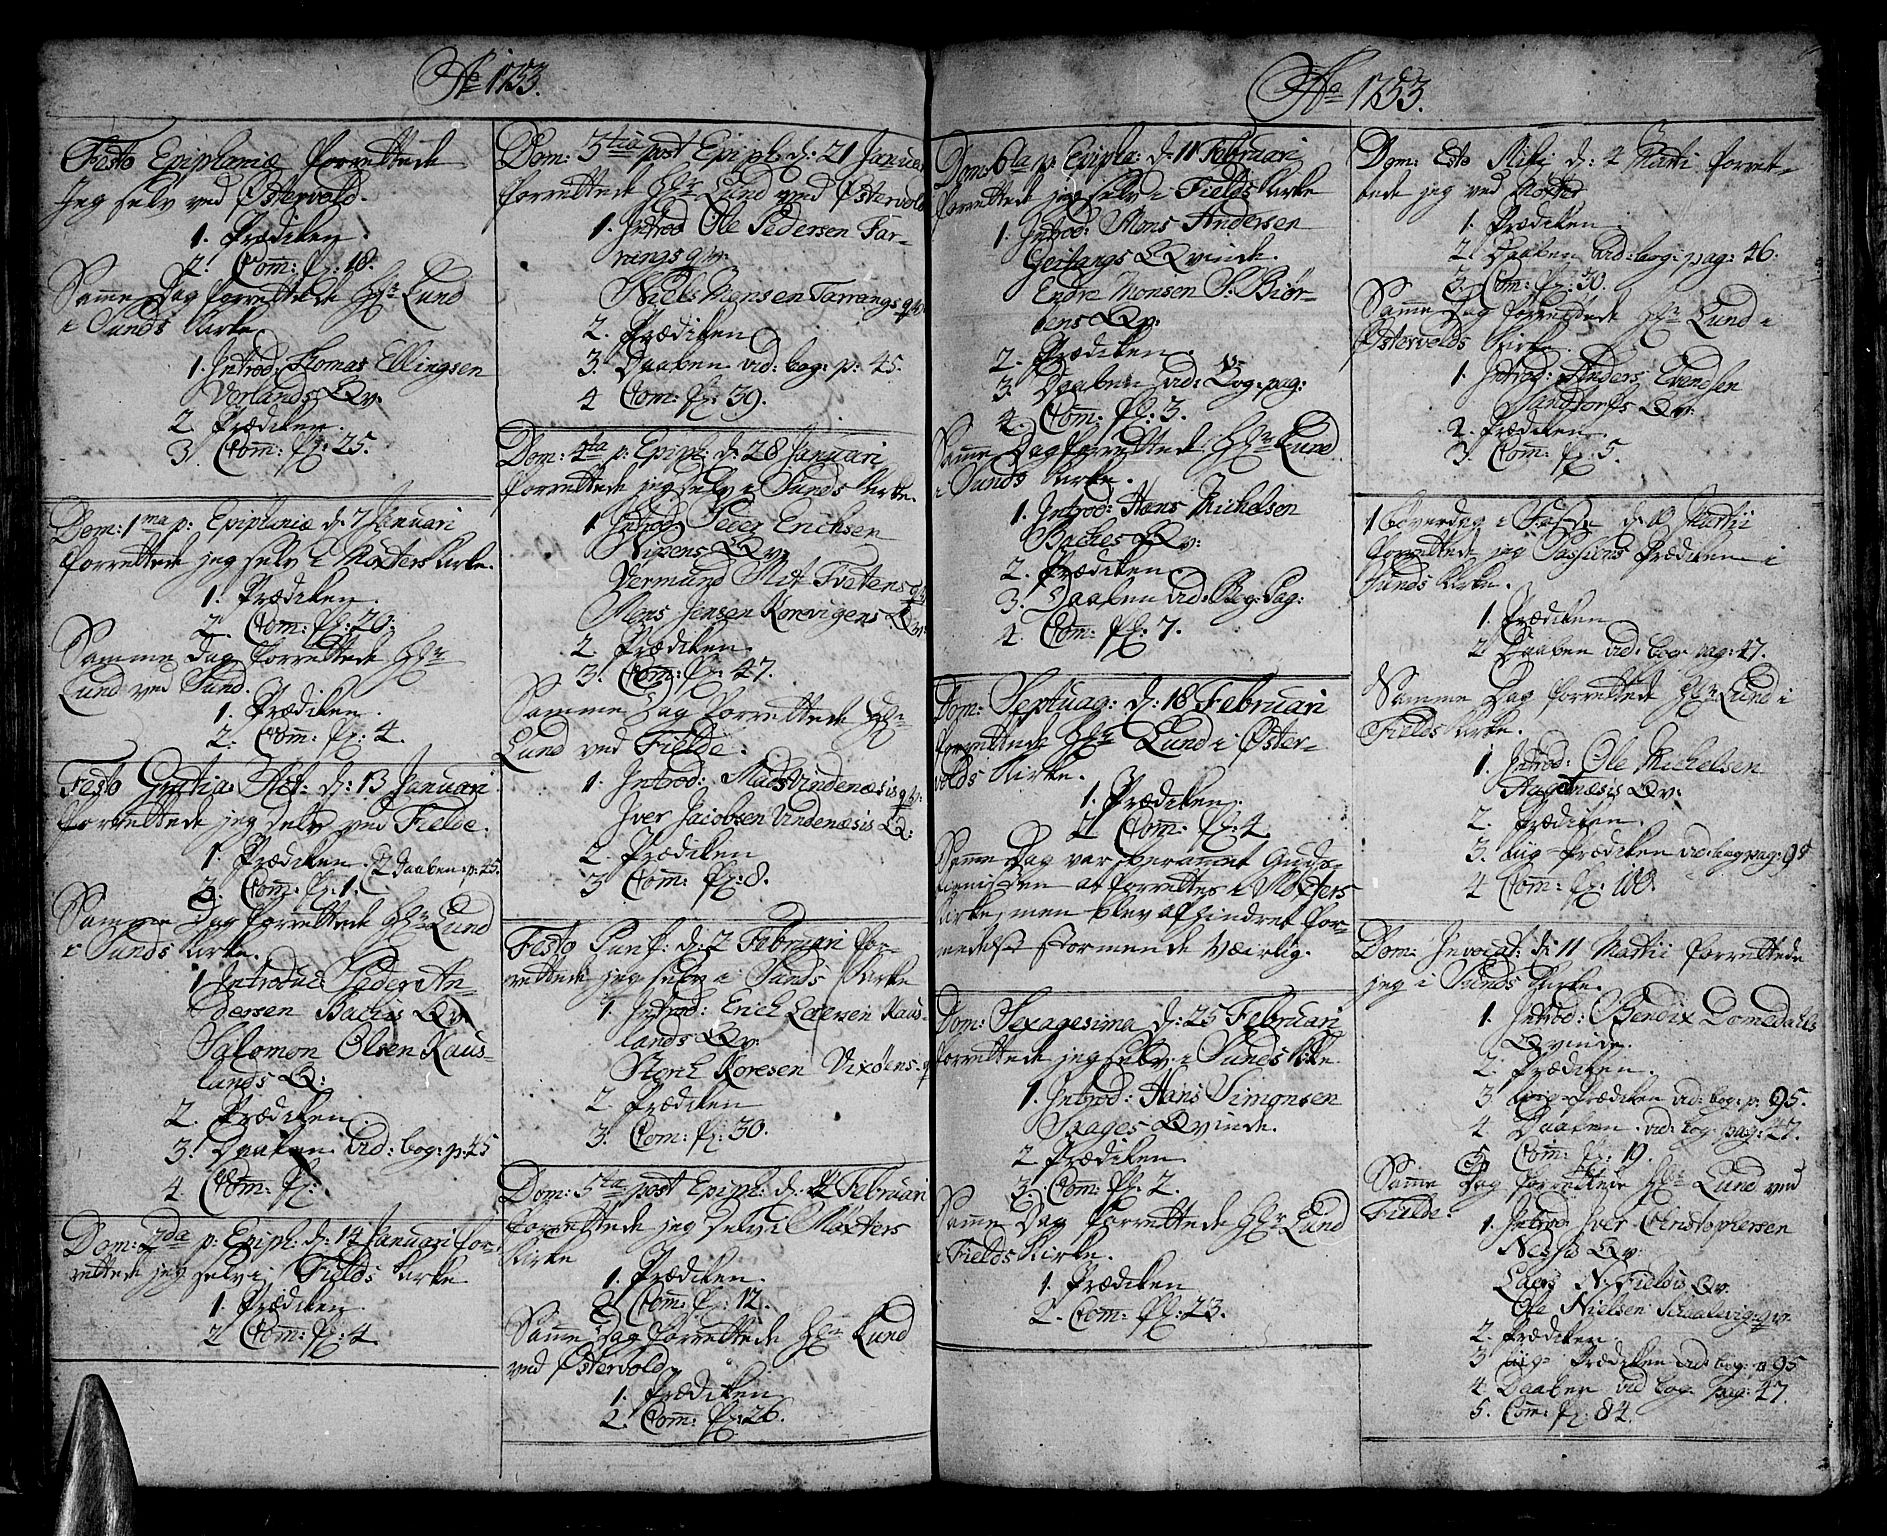 Ao 1753.
Festo Epiphaniæ forrettede
Jeg selv ved Østervold.
1. Prædiken.
2. Com: P: 18.
Samme Dag forrettede Hr Lund
i Sunds Kirke
1. Introd: Thomas Ellingsen
Vorlands Qv:
2. Prædiken.
3. Com: P: 25.
Dom: 1ma p: Epiphaniæ d: 7 Januari
forrettede jeg selv i Møxters Kirke.
1. Prædiken.
2. Com: P: 20.
Samme Dag forrettede Hr
Lund ved Sund.
1. Prædiken.
2. Com: P: 4.
Festo d: 13 Januari
forrettede jeg selv ved Fielde.
1. Prædiken. 2 Daaben: p: 45.
3. Com: P: 1.
Samme Dag forrettede Hr Lund
i Sunds Kirke.
1 Introduc Peder An-
dersen Bachis Qv
Salomon Olsen Kaus-
lands Q:
2. Prædiken
3. Daaben vid: bog: p: 45
4. Com: P:
Dom: 2da p: Epiph: d: 14 Januari for-
rettede jeg selv i Fields Kirke
1. Prædiken.
2 Com: P: 4
Dom: 3tia post Epiph: d: 21 Januari
forrettede Hr Lund ved Østervold
1. Introd Ole Pedersen Tar-
rangs qv:
Niels Monsen Tarrangs qv:
2. Prædiken
3. Daaben vid: bog: p: 45.
4 Com: P: 39.
Dom: 4ta p: Epiph: d: 28 Januari
forrettede jeg selv i Sunds Kirke.
1 Introd Peder Erichsen
Nipens Qv:
Vermund Tvetens qv:
Mons Jensen Korsvigens Qv:
2 Prædiken.
3. Com: P: 47.
Samme Dag forrettede Hr
Lund ved Fielde.
1. Introd: Mads Vindenæsis qv:
Iver Jacobsen Vindenæsis Q:
2. Prædiken
3 Com: P: 8.
Festo Purif: d: 2 Februari for-
rettede jeg selv i Sunds Kirke
1. Introd: Erich Larsen Kaus-
lands Qv.
Koresen
2. Prædiken
3. Com: P: 30.
Dom: 5ta post Epiph: d: 4 Februari
forrettede jeg selv i Møxters
Kirke
1. Prædiken.
2 Com: P: 12.
Samme Dag forrettede Hr Lund
ved Østervold
1. Prædiken
2. Com: P: 26.
Ao 1753.
Dom: 6ta p: Epipha: d: 11 Februari
forrettede jeg selv i Fields Kirke
1. Introd: Mons Andersen
Qvinde.
Endre Monsen S: Biør-
bens Qv:
2. Prædiken.
3. Daaben vid: Bog: pag:
4. Com: P: 3.
Samme Dag forrettede Hr Lund
i Sunds Kirke.
1. Introd: Hans Michelsen
Baches Qv:
2. Prædiken.
3. Daaben vid: Bog: Pag:
4. Com: P: 7.
Dom: Septuag: d: 18 Februari
forrettede Hr Lund i Øster-
volds Kirke.
1. Prædiken.
2 Com: P: 4
Samme Dag var berammet Guds-
tienisten at forrettes i Møxters
Kirke, men blev afhindret for-
medelst stormende Væirlig.
Dom: Sexagesima d: 25 Februari
forrettede jeg selv i Sunds Kirke
1. Introd: Hans Simonsen
Skages Qvinde.
2 Prædiken.
3. Com: P: 2.
Samme Dag forrettede Hr Lund
i Fields Kirke.
1. Prædiken
2. Com: P: 23.
Dom: Esto Mihi d: 4 Marti forret-
tede jeg ved Møxter
1. Prædiken.
2 Daaben vid: bog: pag: 46.
3. Com: P: 30.
Samme Dag forrettede Hr Lund i
Østervolds Kirke.
1. Introd: Anders Evendsen
Sandtorfs Qv:
2. Prædiken.
3. Com: P: 5.
i Faste d: Martii
forrettede jeg Passions Prædiken i
Sunds Kirke.
1. Prædiken
2 Daaben vid: bog: pag: 47.
Samme Dag forrettede Hr Lund i
Fields Kirke.
1. Introd: Ole Michelsen
Hagenæsis Qv:
2. Prædiken.
3. Liig-Prædiken vid: bog pag: 95
4 Com: P:
Dom: Invocat: d: 11 Martii forrettede
jeg i Sunds Kirke.
1. Introd: Bendix Domedals
Qvinde.
2. Prædiken.
3 Liig-Prædiken vid: bog: p: 95.
4 Daaben vid: bog: pag: 47.
5 Com: P: 19.
Samme Dag forrettede Hr Lund ved
Fielde.
1. Introd Iver Christophersen
Nessis Qv:
Lars N: Fieldis Qv.
Ole Nielsen Schaalevig: qv:
2. Prædiken.
3 Liig-Prædiken vid: bog: p 95
4. Daaben vid bog: pag: 47.
5. Com: P: 84.